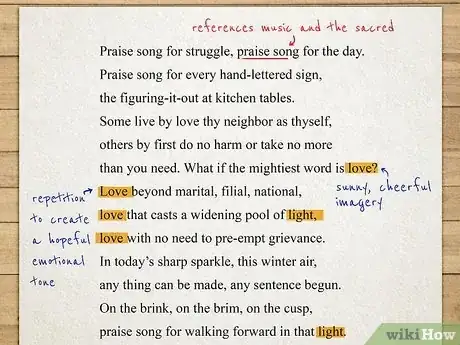 references music and the sacred
Praise song for struggle, praise song for the day.
Praise song for every hand-lettered sign,
the figuring-it-out at kitchen tables.
Some live by love thy neighbor as thyself,
others by first do no harm or take no more
than you need. What if the mightiest word is love?
Love beyond marital, filial, national,
love that casts a widening pool of light,
love with no need to pre-empt grievance.
In today's sharp sparkle, this winter air,
any thing can be made, any sentence begun.
On the brink, on the brim, on the cusp,
praise song for walking forward in that light.
repetition
to create
a hopeful
emotional
tone
sunny, cheerful
imagery
wikiHow